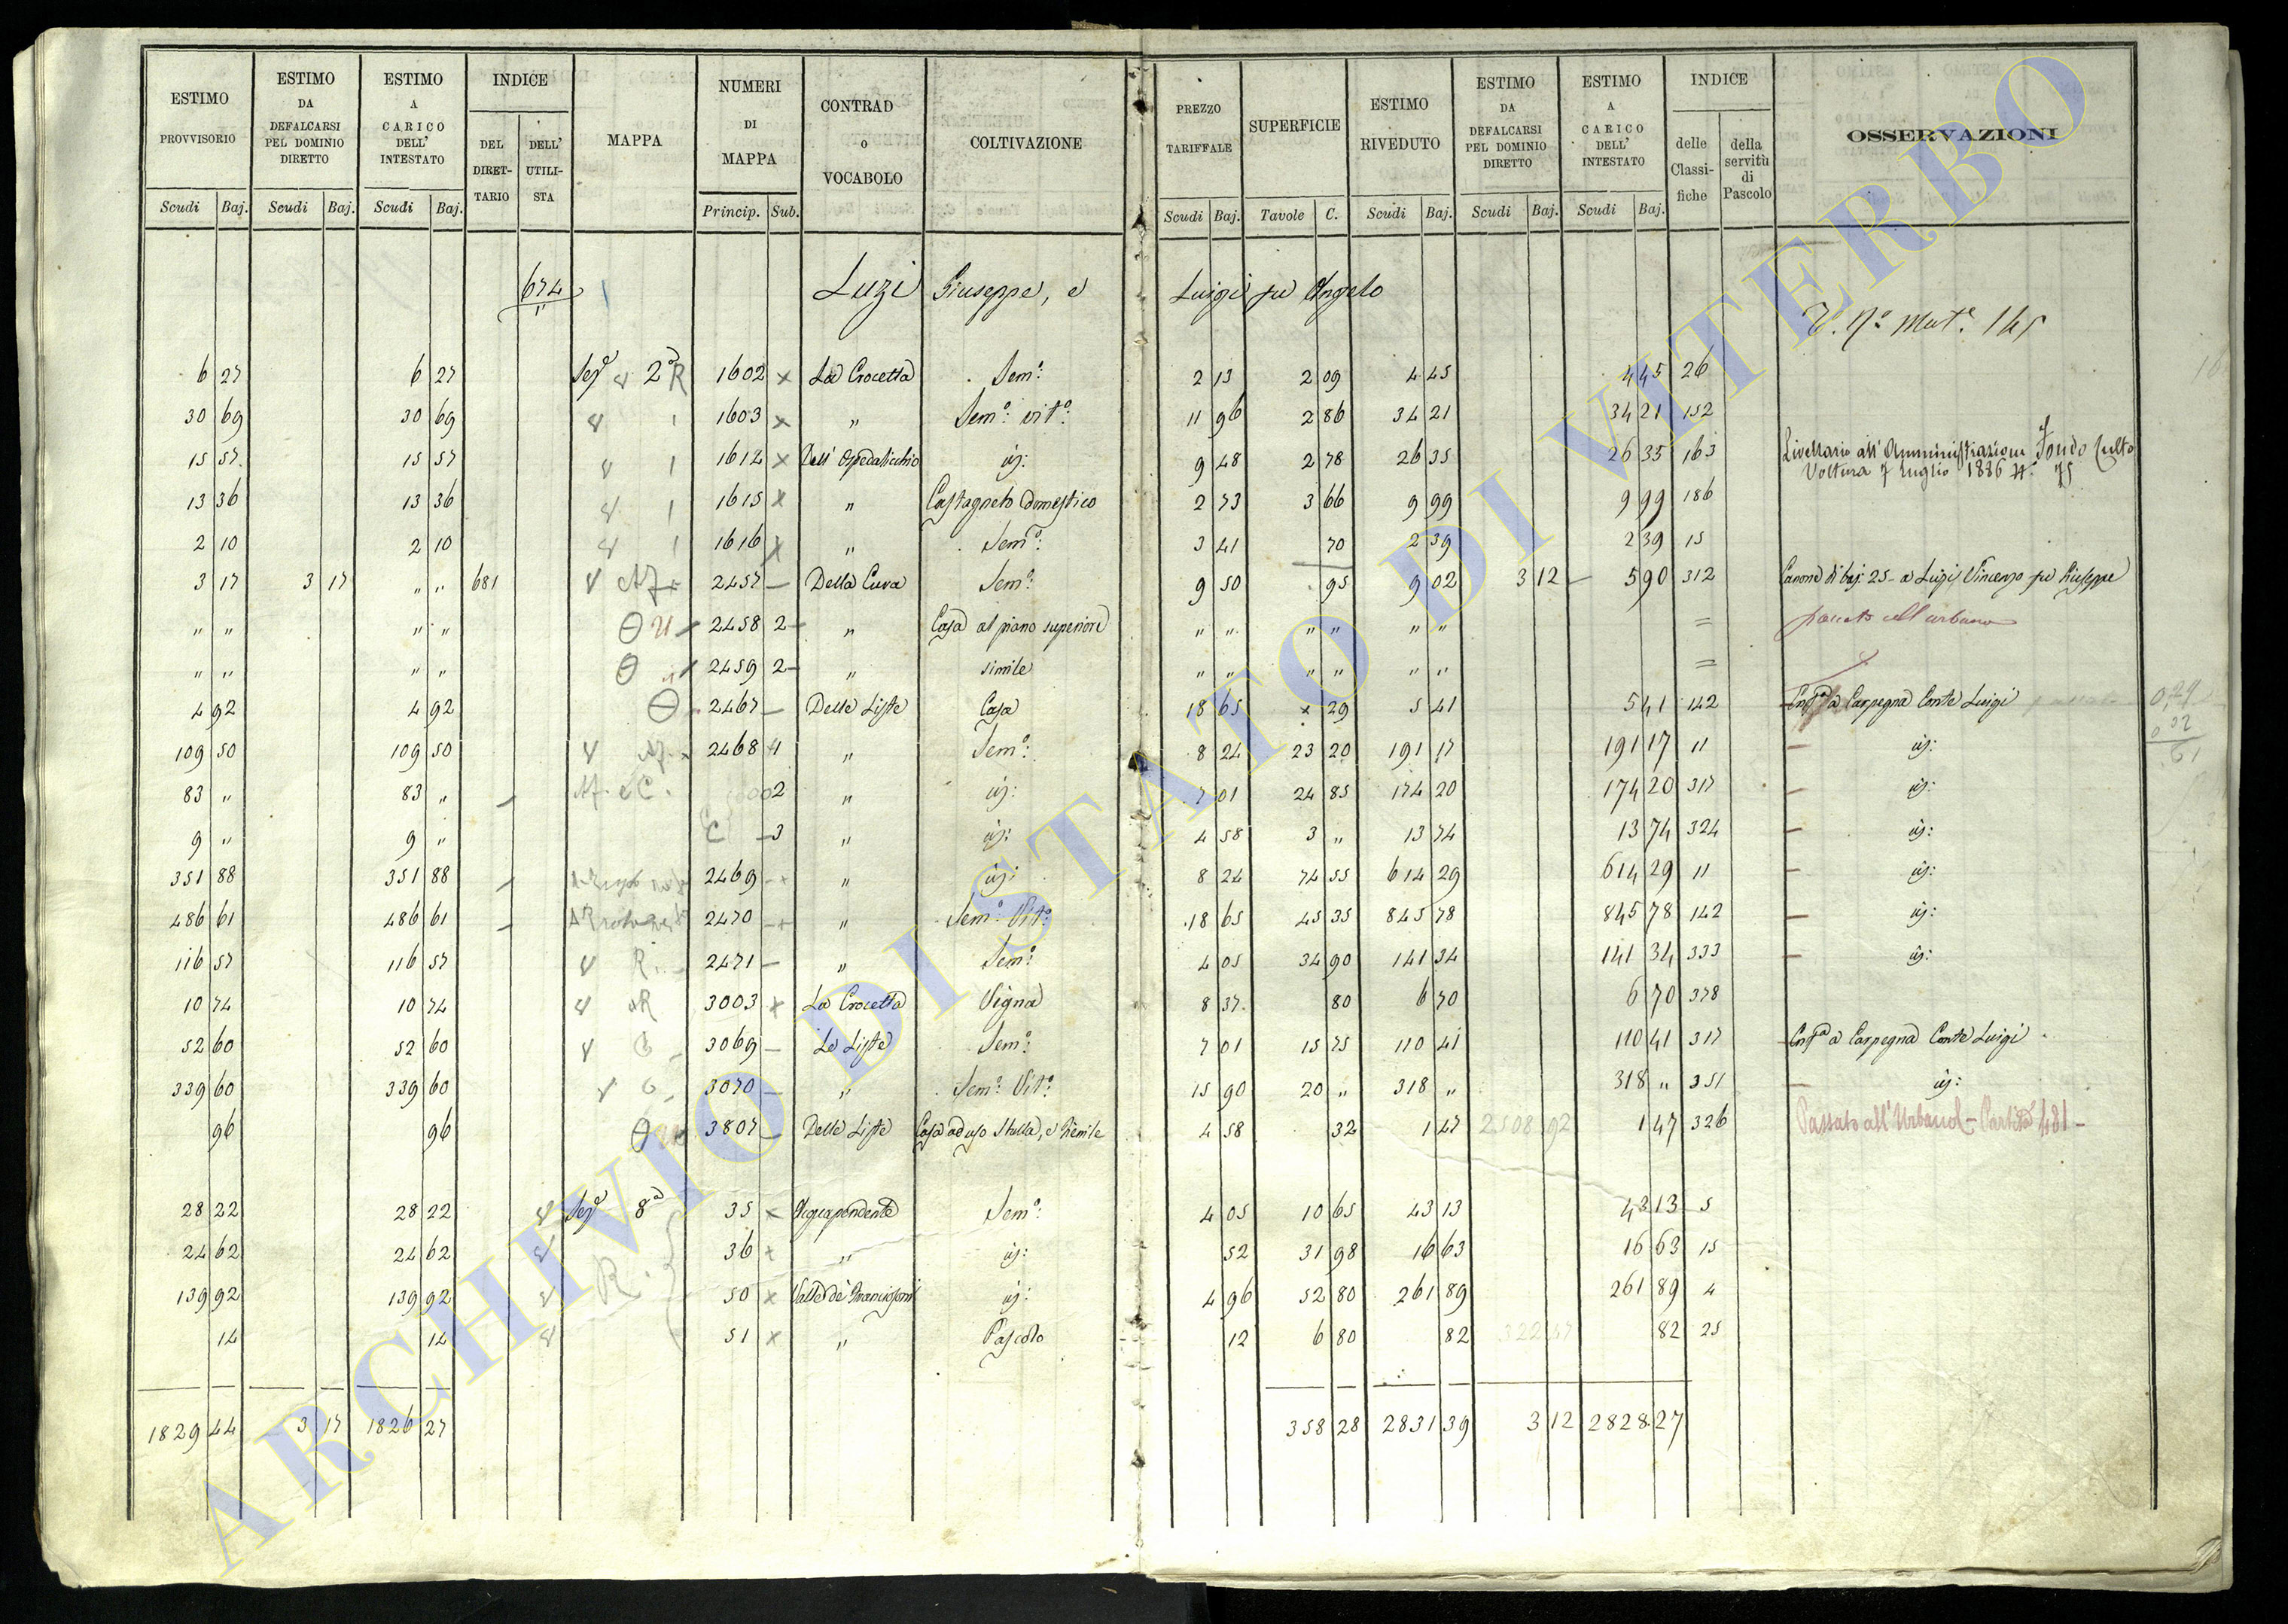 ESTIMO PROVVISORIO | ESTIMO DA DEFALCARSI PEL DOMINIO DIRETTO | ESTIMO A CARICO DELL' INTESTATO | INDICE DEL DIRETTARIO | DELL' UTILISTA | MAPPA | NUMERI DI MAPPA | CONTRAD O VOCABOLO | COLTIVAZIONE | PREZZO TARIFFALE | SUPERFICIE | ESTIMO RIVEDUTO | ESTIMO DA DEFALCARSI PEL DOMINIO DIRETTO | ESTIMO A CARICO DELL' INTESTATO | INDICE delle Classifiche | della servitù di Pascolo | OSSERVAZIONI
Scudi Baj. | Scudi Baj. | Scudi Baj. | Princip. Sub. | Scudi Baj. | Tavole C. | Scudi Baj. | Scudi Baj. | Scudi Baj.
674 Luzi Giuseppe, e Luigi fu Angelo
V. N.° Mut.e 145
6 27 | 6 27 | Sez.e 2a R | 1602 x | La Crocetta | Sem.o: | 2 13 | 2 09 | 4 45 | 4 45 | 26
30 69 | 30 69 | 1603 x | " | Sem.o: vit.o: | 11 96 | 2 86 | 34 21 | 34 21 | 152
15 57 | 15 57 | 1612 x | Dell' Ospedalicchio | id: | 9 48 | 2 78 | 26 35 | 26 35 | 163 | Livellario all' Amministrazione Fondo Culto
Voltura 7 luglio 1886 N. 75
13 36 | 13 36 | 1615 x | " | Castagneto domestico | 2 73 | 3 66 | 9 99 | 9 99 | 186
2 10 | 2 10 | 1616 x | " | Sem.o: | 3 41 | 70 | 2 39 | 2 39 | 15
3 17 | 3 17 | " " | 681 | 2457 — | Della Cura | Sem.o: | 9 50 | 95 | 9 02 | 3 12 | 5 90 | 312 | Canone di baj: 25 - a Luzi Vincenzo fu Giuseppe
" " | " " | U | 2458 2 | " | Casa al piano superiore | " " | " " | " " | = | passato all'urbano
" " | " " | 2459 2 | " | simile | " " | " " | " " | =
4 92 | 4 92 | 2467 — | Delle Liste | Casa | 18 65 | x 29 | 5 41 | 5 41 | 142 | Enf.a a Carpegna Conte Luigi
109 50 | 109 50 | 2468 1 | " | Sem.o: | 8 24 | 23 20 | 191 17 | 191 17 | 11 | — id:
83 " | 83 " | 2 | " | id: | 7 01 | 24 85 | 174 20 | 174 20 | 317 | — id:
9 " | 9 " | C | 3 | " | id: | 4 58 | 3 " | 13 74 | 13 74 | 324 | — id:
351 88 | 351 88 | 2469 | " | id: | 8 24 | 74 55 | 614 29 | 614 29 | 11 | — id:
486 61 | 486 61 | 2470 | " | Sem.o: Vit.o: | 18 65 | 45 35 | 845 78 | 845 78 | 142 | — id:
116 57 | 116 57 | R. | 2471 — | " | Sem.o: | 4 05 | 34 90 | 141 34 | 141 34 | 333 | — id:
10 74 | 10 74 | R | 3003 x | La Crocetta | Vigna | 8 37 | 80 | 6 70 | 6 70 | 378
52 60 | 52 60 | 3069 — | Le Liste | Sem.o: | 7 01 | 15 75 | 110 41 | 110 41 | 317 | Enf.a a Carpegna Conte Luigi
339 60 | 339 60 | 3070 — | " | Sem.o: Vit.o: | 15 90 | 20 " | 318 " | 318 " | 351 | — id:
96 | 96 | 3807 — | Delle Liste | Casa ad uso Stalla, e Fienile | 4 58 | 32 | 1 47 | 2508 92 | 1 47 | 326 | Passato all' Urbano - Partita 481 -
28 22 | 28 22 | Sez.e 8a | 35 x | Acquapendente | Sem.o: | 4 05 | 10 65 | 43 13 | 43 13 | 5
24 62 | 24 62 | R. | 36 x | " | id: | 52 | 31 98 | 16 63 | 16 63 | 15
139 92 | 139 92 | 50 x | id: | 4 96 | 52 80 | 261 89 | 261 89 | 4
14 | 14 | 51 x | " | Pascolo | 12 | 6 80 | 82 | 82 | 25
1829 44 | 3 17 | 1826 27 | 358 28 | 2831 39 | 3 12 | 2828 27
ARCHIVIO DI STATO DI VITERBO